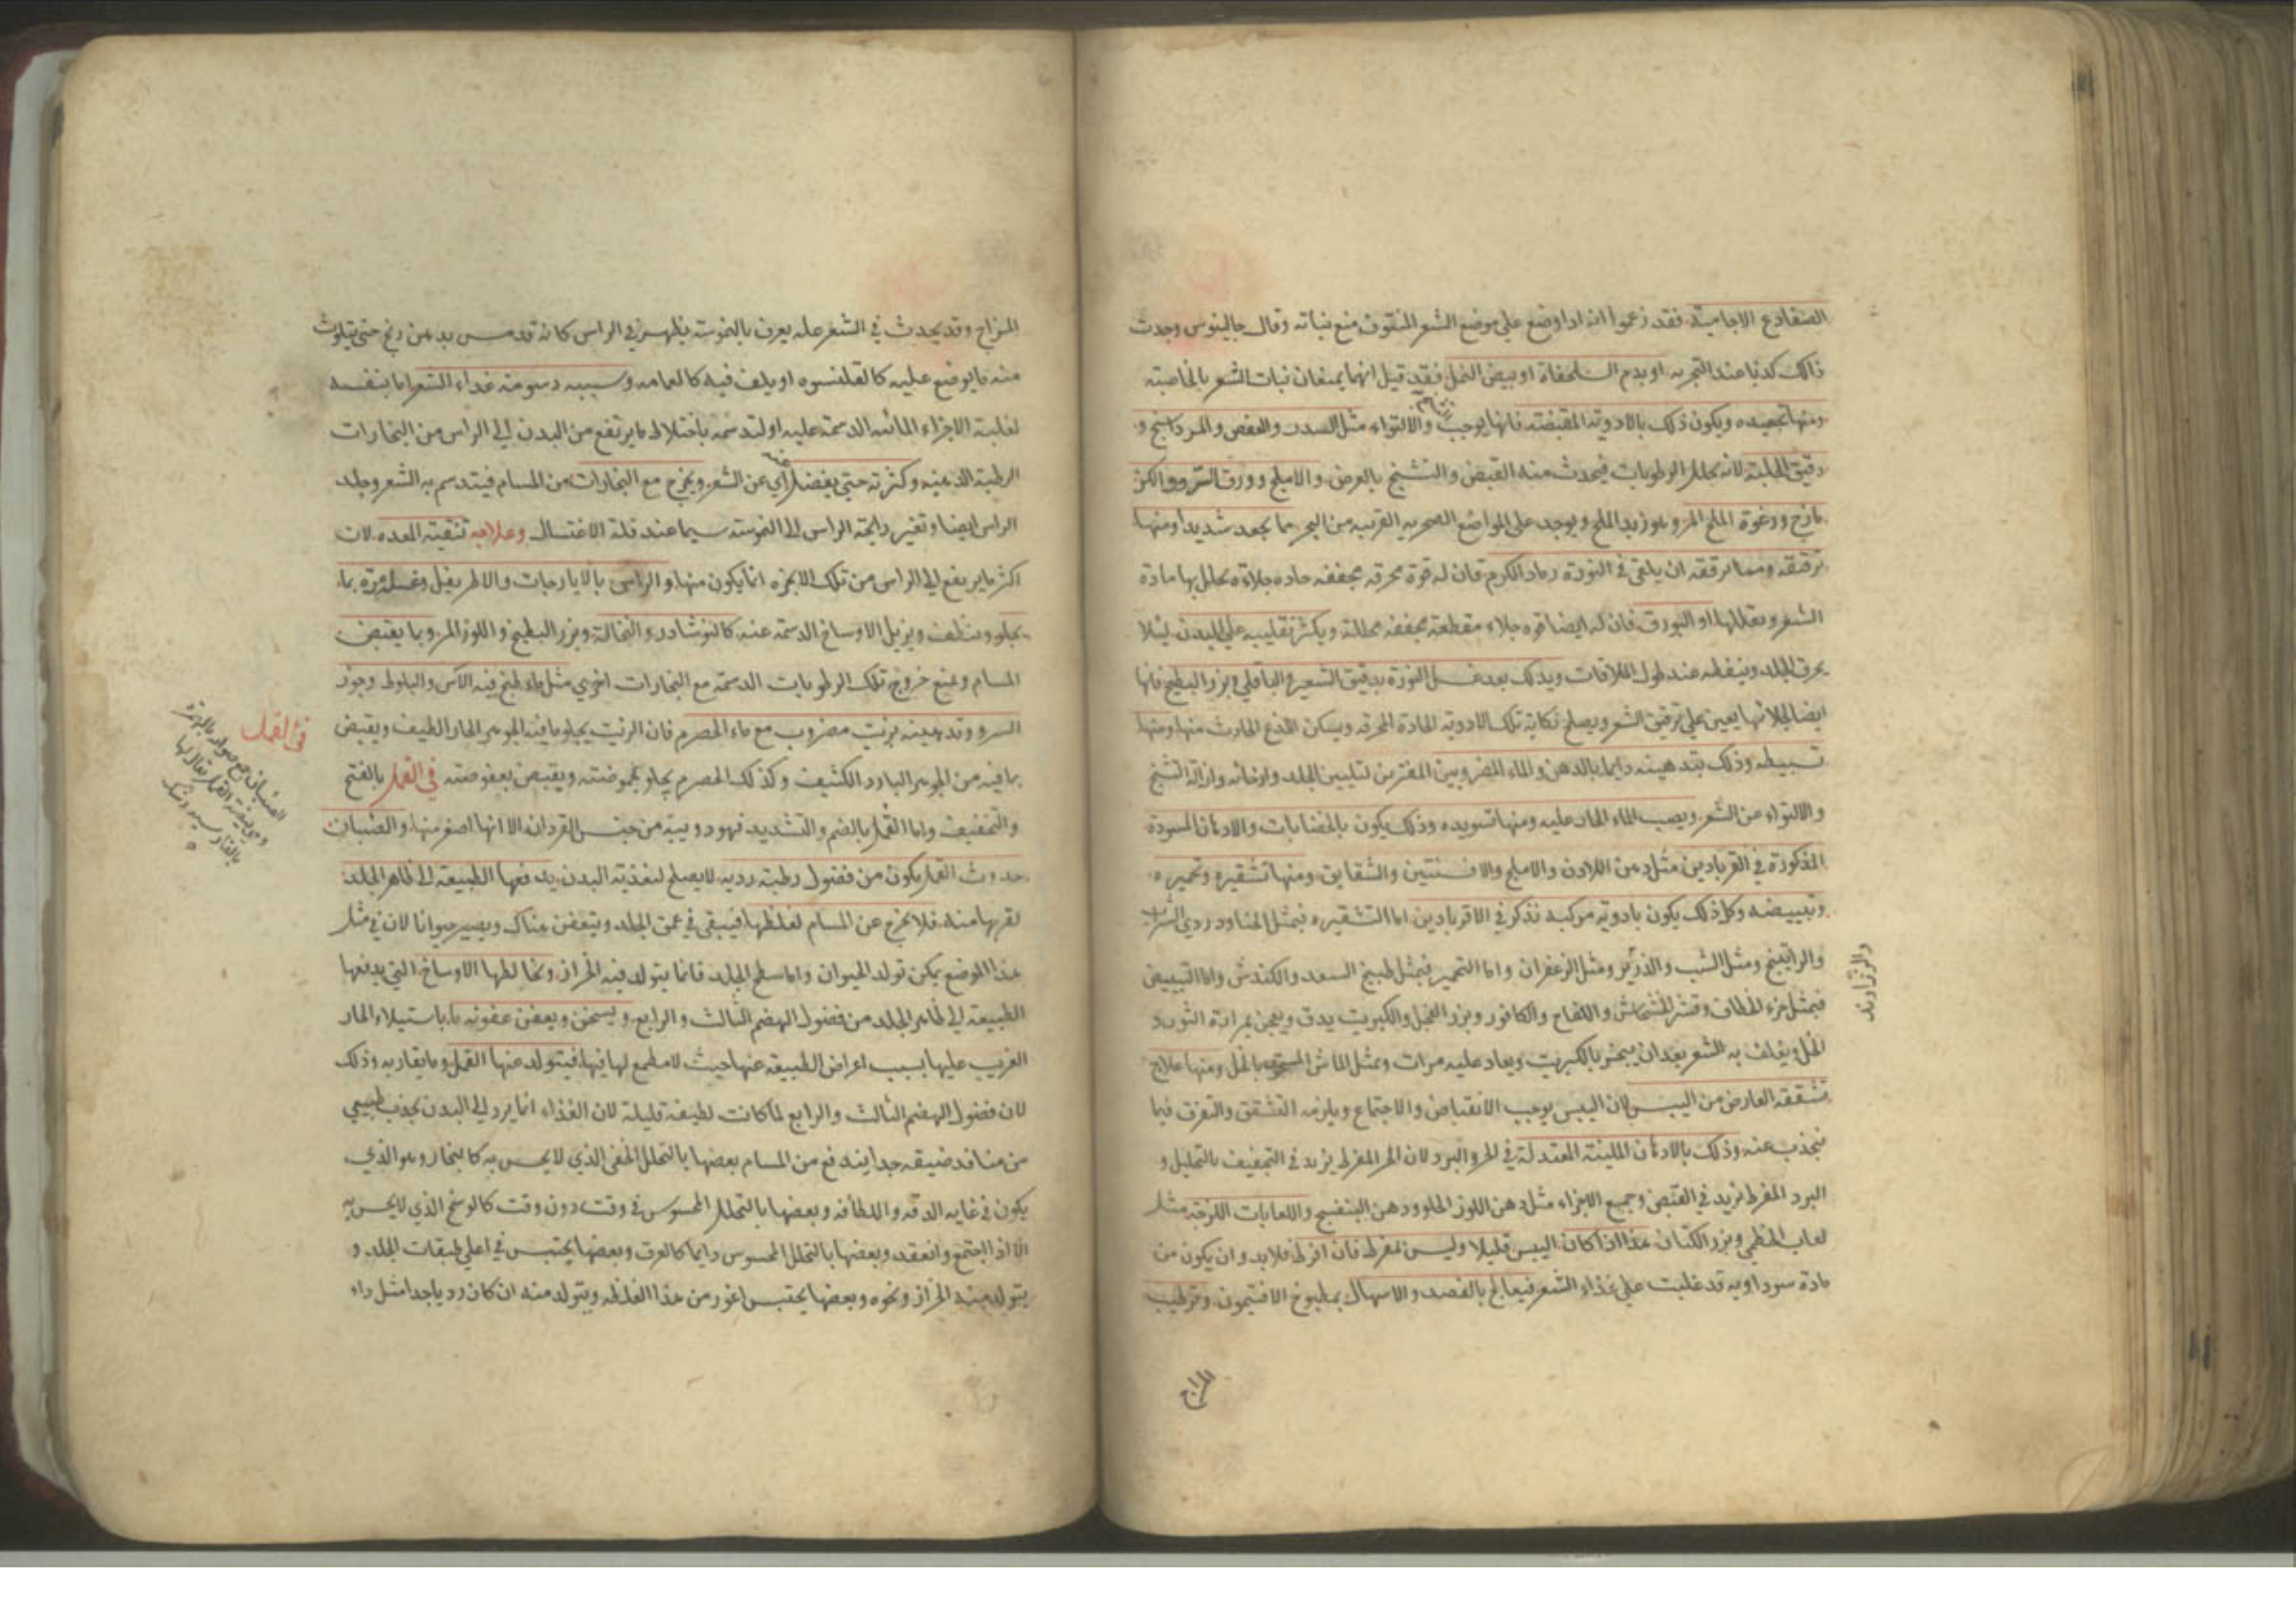 الضفادع الاجامية فقد زعموا انه اذا وضع علي موضع الشعر المنتوف منع نباته وقال جالينوس وجدت
ذلك كذبا عند التجربه او بدم السلحفاة او بيض النمل فقد قيل انهما يمنعان نبات الشعر بالخاصيته
ومنها تجعيده ويكون ذلك بالادوية المقبضته فانها يوجب والالتواء مثل السدر والعفص والمرداسنج و
دقيق الحلبة لانه يحلل الرطوبات فيحدث منه القبض والتشنج بالعرض والاملج وورق السرو والكز
مازج ورغوة الملح المر وهو زبد الملح ويوجد علي المواضع الصخريه القريبه من البحر مما يجعد شديدا ومنها
ترقيقه ومما يرققه ان يلقي في النورة رماد الكرم فان له قوة محرقه مجففه حاده جلاءه يحلل بها مادة
الشعر ويقللها او البورق فان له ايضا قوه جلاء مقطعة مجففه محللة ويكثر تقليبه علي البدن ليلا
يحرق الجلد وينفطه عند طول الملاقات ويدلك بعد غسل النورة بدقيق الشعير والباقلي وبزر البطيخ فانها
ايضا لجلائها يعين علي ترقيق الشعر ويصلح نكاية تلك الادويه الحادة المحرقه ويسكن اللذع الحادث منها ومنها
تسبيطه وذلك بتدهينه دايما بالدهن والماء المضروبين المفترين لتليين الجلد وارخائه وازالة التشنج
والالتواء عن الشعر ويصب الماء الحار عليه ومنها تسويده وذلك يكون بالخضابات والادهان المسودة
المذكورة في القرابادين مثل دهن اللادن والاملج والافسنتين والشقايق ومنها تشقيره وتحميره
وتبييضه وكل ذلك يكون بادوية مركبه تذكر في الاقرابادين اما التشقيره فبمثل الحنا ودردي الشراب
والراتينج ومثل الشب والذرير ومثل الزعفران واما التحمير فبمثل طبيخ السعد والكندش واما التبييض
والزراوند
فبمثل خرء الخطاف وقشر الخشخاش واللفاح والكافور وبزر الفجل والكبريت يدق ويعجن بمرارة الثور و
الخل ويغلف به الشعر بعد ان يبخر بالكبريت ويعاد عليه مرات وبمثل الماش بالخل ومنها علاج
تشققه العارض من اليبس لان اليبس يوجب الانقباض والاجتماع ويلزمه التشقق والتفرق فيما
ينجذب عنه وذلك بالادهان الملينة المعتدلة في الحر والبرد لان الحر المفرط يزيد في التجفيف بالتحليل و
البرد المفرط يزيد في القبض وجميع الاجزاء مثل دهن اللوز الحلو ودهن البنفسج واللعابات اللزجة مثل
لعاب الخطمي وبزر الكتان هذا اذا كان اليبس قليلا وليس بمفرط فان افرط فلابد وان يكون من
مادة سوداويه قد غلبت علي غذاء الشعر فيعالج بالفصد والاسهال بمطبوخ الافتيمون وترطيب
المزاج
المزاج وقد يحدث في الشعر عله يعرف بالنموسته يظهر في الراس كانه قد مس بدهن زنخ حتي يتلوث
منه ما يوضع عليه كالقلنسوه او يلف فيه كالعمامه وسببه دسومة غذاء الشعر اما بنفسه
لغلبة الاجزاء المائيه الدسمة عليه او لتدسمه باختلاط ما يرتفع من البدن الي الراس من البخارات
الرطبة الدهنيه وكثرته حتي يفضل اي عن الشعر ويخرج مع البخارات من المسام فيتدسم به الشعر وجلد
الراس ايضا وتغير رايحة الراس الي النموسته سيما عند قلة الاغتسال وعلاجه تنقية المعده لان
اكثر ما يرتفع الي الراس من تلك الابخره انما يكون منها والراس بالايارجات والاطريفل وغسله مرة بما
يجلو وينظف ويزيل الاوساخ الدسمة عنه كالنوشادر والنخالة وبزر البطيخ واللوز المر وبما يقبض
المسام ويمنع خروج تلك الرطوبات الدسمة مع البخارات اخري مثل ماء طبخ فيه الآس والبلوط وجوز
السرو وتدهينه بزيت مضروب مع ماء الحصرم فان الزيت يجلو بما فيه الجوهر الحار اللطيف ويقبض
بما فيه من الجوهر البارد الكثيف وكذلك الحصرم يجلو بحموضته ويقبض بعفوصته في القمل بالفتح
في القمل
والتخفيف واما القمل بالضم والتشديد فهو دويبة من جنس القردان الا انها اصغر منها والصئبان
الصئبان جمع صوابه بالهمزة
وهو بيضة القمل يقال لها
بالفارسيه رشك
حدوث القمل يكون من فضول رطبة رديه لا يصلح لتغذية البدن يدفعها الطبيعة الي ظاهر الجلد
لقربها منه فلا يخرج عن المسام لغلظها فيبقي في عمق الجلد ويتعفن هناك ويصير حيوانا لان في مثل
هذا الموضع يمكن تولد الحيوان واما سطح الجلد فانما يتولد فيه الحزاز ويخالطها الاوساخ التي يدفعها
الطبيعة الي ظاهر الجلد من فضول الهضم الثالث والرابع ويسخن ويعفن عفونه ما باستيلاء الحار
الغريب عليها بسبب اعراض الطبيعه عنها حيث لا مطمع لها فيها فيتولد عنها القمل وما يقاربه وذلك
لان فضول الهضم الثالث والرابع لما كانت لطيفة قليلة لان الغذاء انما يرد الي البدن بجذب طبيعي
من منافذ ضيقه جدا يندفع من المسام بعضها بالتحلل الخفي الذي لا يحس به كالبخار وهو الذي
يكون في غاية الدقه واللطافه وبعضها بالتحلل المحسوس في وقت دون وقت كالوسخ الذي لا يحس به
الا اذا اجتمع وانعقد وبعضها بالتحلل المحسوس دايما كالعرق وبعضها يحتبس في اعلي طبقات الجلد و
يتولد منه الحزاز ونحوه وبعضها يحتبس اغور من هذا الغلظه ويتولد منه ان كان رديا جدا مثل داء